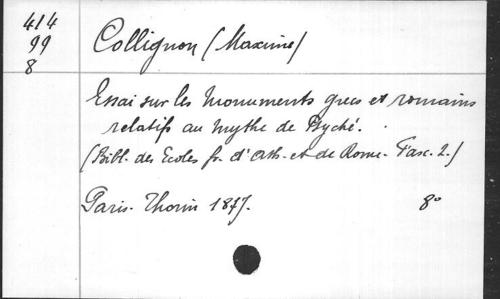 414
99
8
Collignon (Maxime)
Essai sur les monuments grecs et romains
relatifs au mythe de Psyché.
(Bibl. des Ecoles fr. d'Ath. et de Rome. Fasc. 2.)
Paris. Thorin 1877. 8°